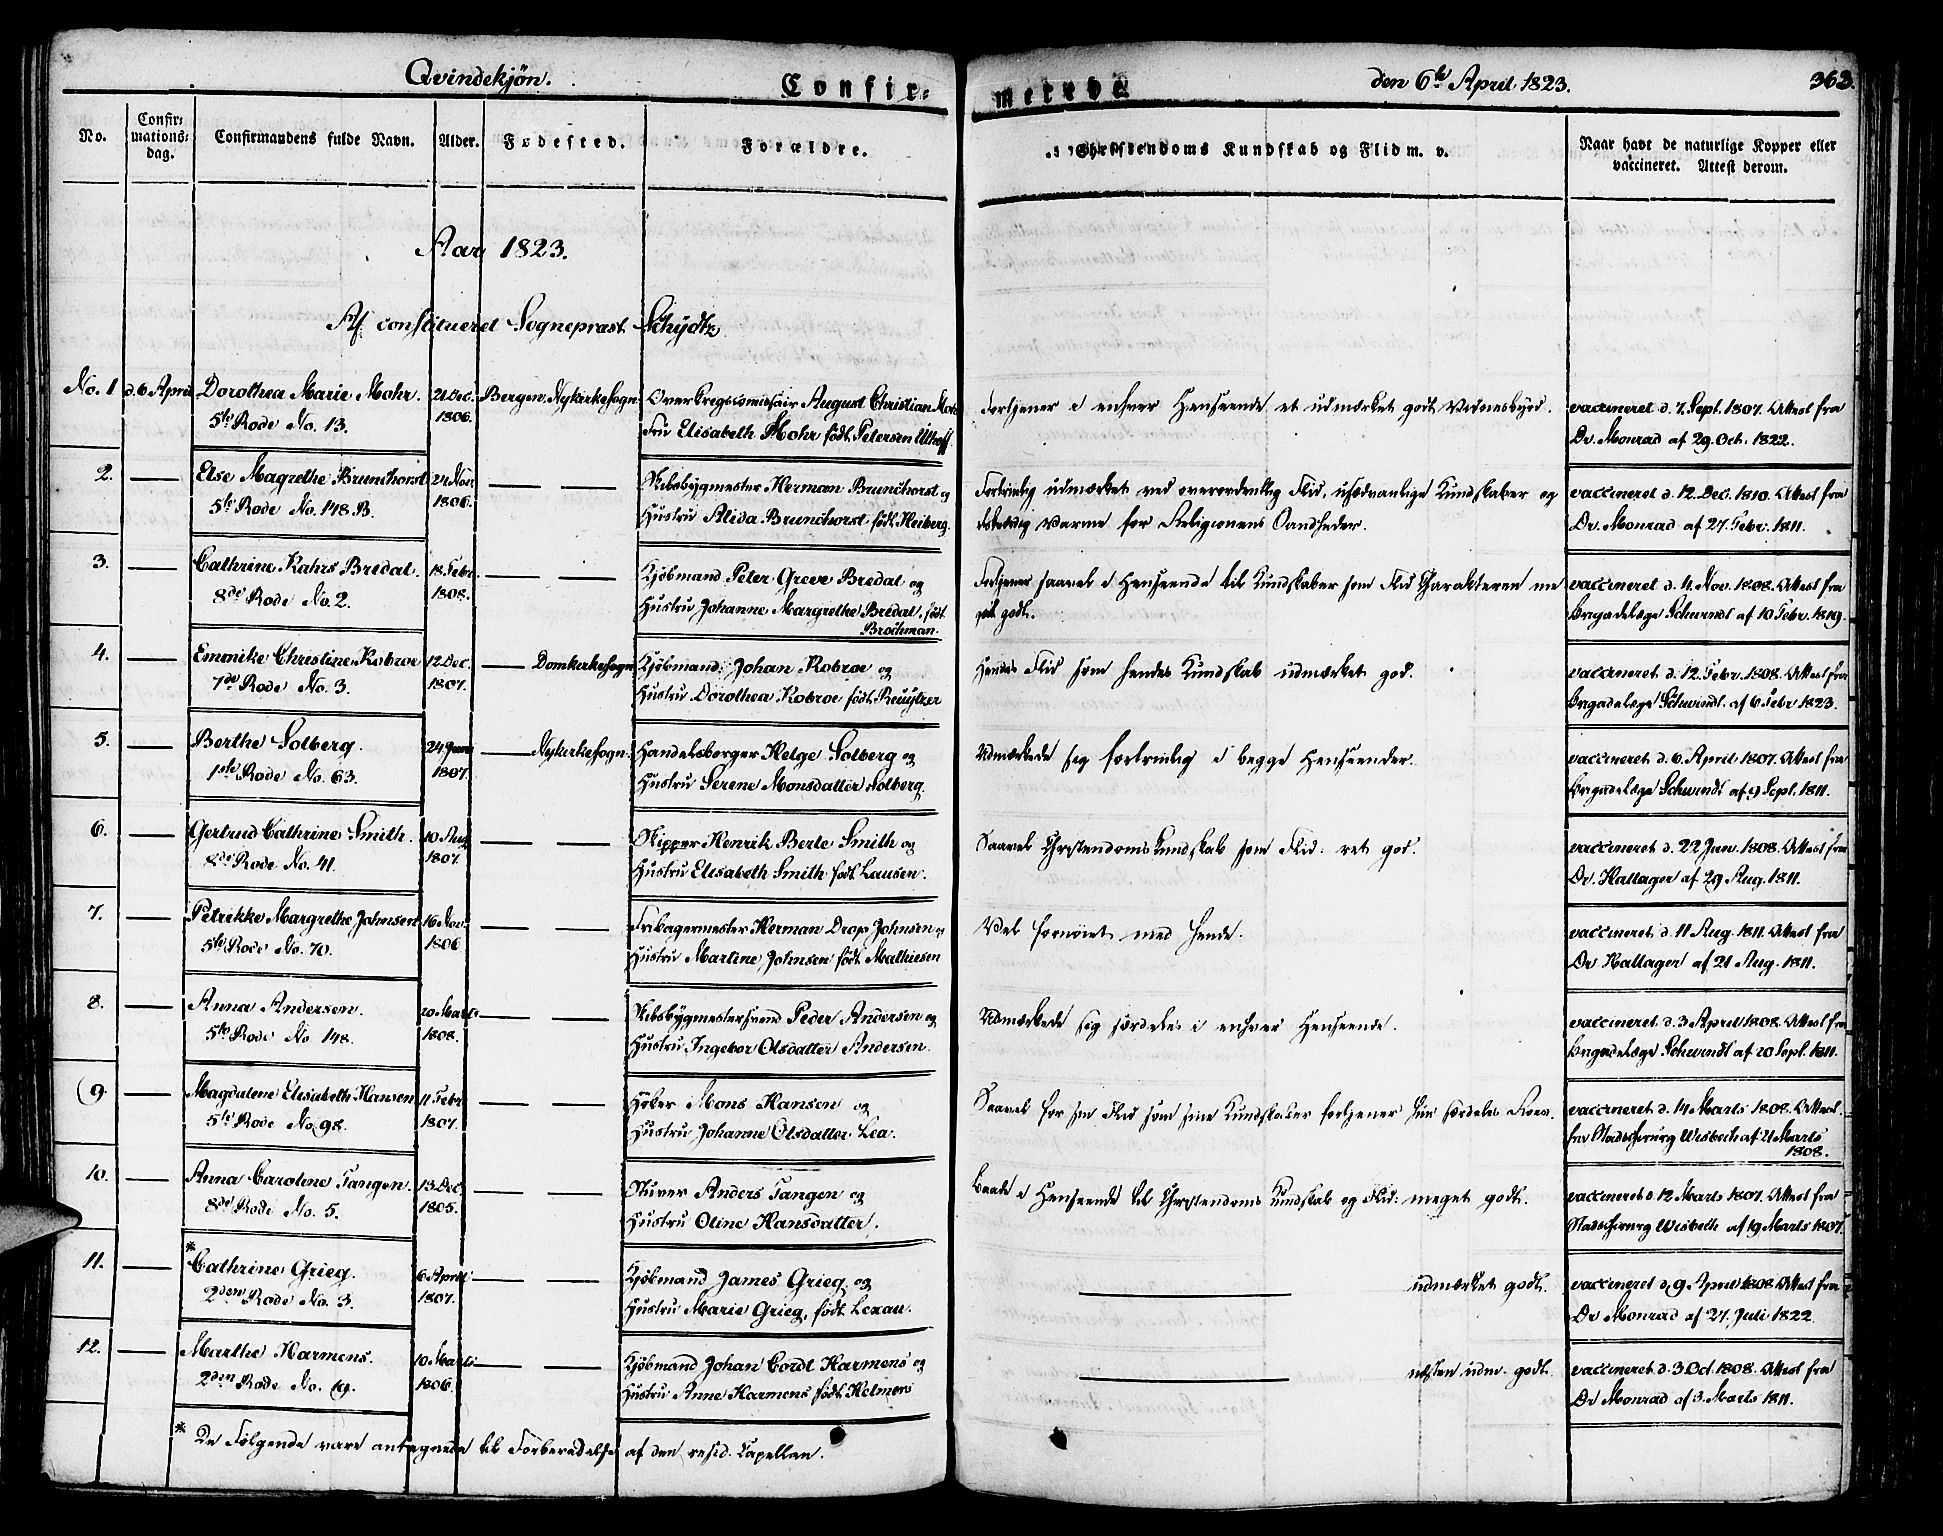 Qvindekjøn.
Confir-
No.
Confir-
mations-
dag.
Confirmandens fulde Navn.
Alder.
Fødested.
Forældre.
Aar 1823.
Af constitueret Sognepræst Schydtz.
No. 1 d. 6 April Dorothea Marie Mohr. 21 Dec. Bergen, Nykirkesogn Over Krigscomissair August Christian Mohr
5te Rode No. 13. 1806. Fru Elisabeth Mohr født Petersen Ulhoff
2. Else Magrethe Brunchorst 24 Nov. Skibsbygmester Herman Brunchorst og
5te Rode No. 148 B. 1806. Hustru Alida Brunchorst født Heiberg.
3. Cathrine Kahrs Bredal. 18 Febr. Kjøbmand Peter Greve Bredal og
8de Rode No. 2. 1808. Hustru Johanne Margrethe Bredal, født
Brochman.
4. Emmike Christine Kobroe 12 Dec. Domkirkesogn Kjøbmand Johan Kobroe og
7de Rode No. 3. 1807. Hustru Dorothea Kobroe født Reuytzer
5. Berthe Solberg. 24 Juni Nykirkesogn. Handelsborger Helge Solberg og
1ste Rode No. 63. 1807. Hustru Serene Monsdatter Solberg.
6. Gertrud Cathrine Smith. 10 Aug. Skipper Henrik Berle Smith og
8de Rode No. 41. 1807. Hustru Elisabeth Smith født Lausen.
7. Petrikke Margrethe Johnsen 16 Nov. Herman Drop Johnsen og
5te Rode No. 70. 1806 Hustru Martine Johnsen født Mathiesen
8. Anna Andersen. 20 Marts Skibsbygmestersvend Peder Andersen og
5te Rode No 148. 1808. Hustru Ingebor Olsdatter Andersen.
(9. Magdalene Elisabeth Hansen 11 Febr. Høker Mons Hansen og
5te Rode No. 98. 1807. Hustru Johanne Olsdatter Lea.
10. Anna Caroline Tangen. 13 Dec. Stuver Anders Tangen og
8de Rode No. 5. 1805. Hustru Oline Hansdatter.
11. * Cathrine Grieg. 6 April Kjøbmand James Grieg og
2den Rode No. 3. 1807. Hustru Marie Grieg, født Lexau.
12. Marthe Harmens. 10 Marts Kjøbmand Johan Cordt Harmens og
2den Rode No. 19. 1806. Hustru Anne Harmens født Helmers
* De Følgende vare antegnede til Forberedelse af den resid. Capellan.
merede
den 6te April 1823.
363.
Christendoms Kundskab og Flid m. v.
Naar havt de naturlige Kopper eller
vaccineret. Attest derom.
Fortjener i enhver Henseende et udmærket godt Vidnesbyrd. vaccineret d. 7. Sept. 1807. Attest fra
Dr. Monrad af 29. Oct. 1822.
Fortrinlig udmærket ved overordentlig Flid, usædvanlige Kundskaber og vaccineret d. 12. Dec. 1810. Attest fra
Varme for Religionens Sandheder. Dr. Monrad af 27. Febr. 1811.
Fortjener saavel i Henseende til Kundskaber som Flid Charakteren me vaccineret d. 4. Nov. 1808. Attest fra
get godt. Brigadelæge Schwindt af 10 Febr. 1819.
Hendes Flid som hendes Kundskab udmærket god. vaccineret d. 12. Febr. 1808. Attest fra
Brigadelæge Schwindt. af 6 Febr 1823.
Udmærkede sig fortrinlig i begge Henseender. vaccineret d. 6. April 1807. Attest fra
Brigadelæge Schwindt af 9 Sept. 1811.
Saavel Christendoms Kundskab som Flid: ret god. vaccineret d. 22 Jun. 1808. Attest fra
Dr. Hallager af 29 Aug. 1811.
Vel fornøiet med hende. vaccineret d. 11 Aug. 1811. Attest fra
Dr Hallager af 21 Aug. 1811.
Udmærkede sig særdeles i enhver Henseende. vaccineret d. 3 April 1808. Attest fra
Brigadelæge Schwindt af 20 Sept. 1811.
Saavel for sin Flid som sine Kundskaber fortjener hun særdeles Roes. vaccineret d. 14 Marts 1808. Attest.
fra Stadschirurg Wisbech af 21 Marts
1808.
Baade i Henseende til Christendoms Kundskab og Flid: meget godt. vaccineret d. 12 Marts 1807. Attest fra
Stadschirurg Wisbech af 19 Marts 1807.
udmærket godt. vaccineret d. 9 April 1808. Attest fra
Dr Monrad af 27. Juli 1822
næsten udm. godt. vaccineret d. 3. Oct. 1808. Attest fra
Dr Monrad af 3. Marts 1811.